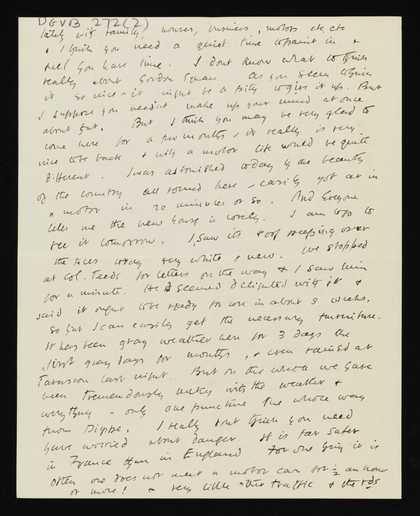 DGVB 272(2)
lately with family, houses, business, motors etc, etc
& I think you need a quiet time to paint in &
feel you have time. I don't know what to think
really about Gordon Square. As you seem to think
it so nice it might be a pity to give it up. But
I suppose you needn't make up your mind at once
about that. But I think you may be very glad to
come here for a few months, it really is very
nice to be back & with a motor life would be quite
different. I was astonished today by the beauty
of the country all round here, easily got at in
a motor in 20 minutes or so. And everyone
tells me the new house is lovely. I am to go to
see it tomorrow. I saw its roof peeping over
the trees today very white & new. We stopped
at Col. Teeds for letters on the way & I saw him
for a minute. He seemed delighted with it &
said it ought to be ready for use in about 3 weeks,
so that I can easily get the necessary furniture.
It has been gray weather here for 3 days the
first gray days for months, & even rained at
Tarascon last night. But on the whole we have
been tremendously lucky with the weather &
everything - only one puncture the whole way
from Dieppe. I really don't think you need
have worried about danger. It is far safer
in France than in England. For one thing it is
often one does not meet a motor car for ½ an hour
or more! & very little other traffic & the rds